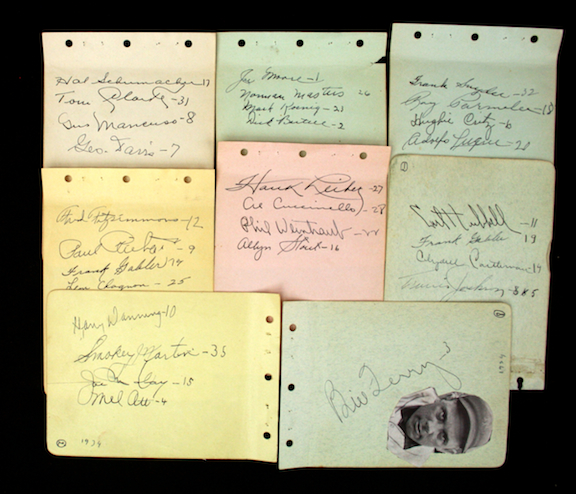 Hal Schumacher 17
Tom Clarke -31
Gus Mancuso -8
Geo. Davis -7
Joe Moore -1
Norman Masters 26
Mark Koenig -21
Dick Bartell -2
Frank Snyder -32
Roy Parmelee -18
Hughie Critz -6
Adolfo Luque -20
Fred Fitzsimmons -12
Paul -9
Frank Gabler 19
Leon Chagnon -25
Hank Leiber -27
Al Cuccinello -28
Phil Weintraub -22
Allyn Stout -16
Carl Hubbell -11
Frank Gabler 19
Clydell Castleman 17
Travis Jackson
Harry Danning -10
Smokey Martin -35
-15
Mel Ott -4
1934
Bill Terry -3
1934